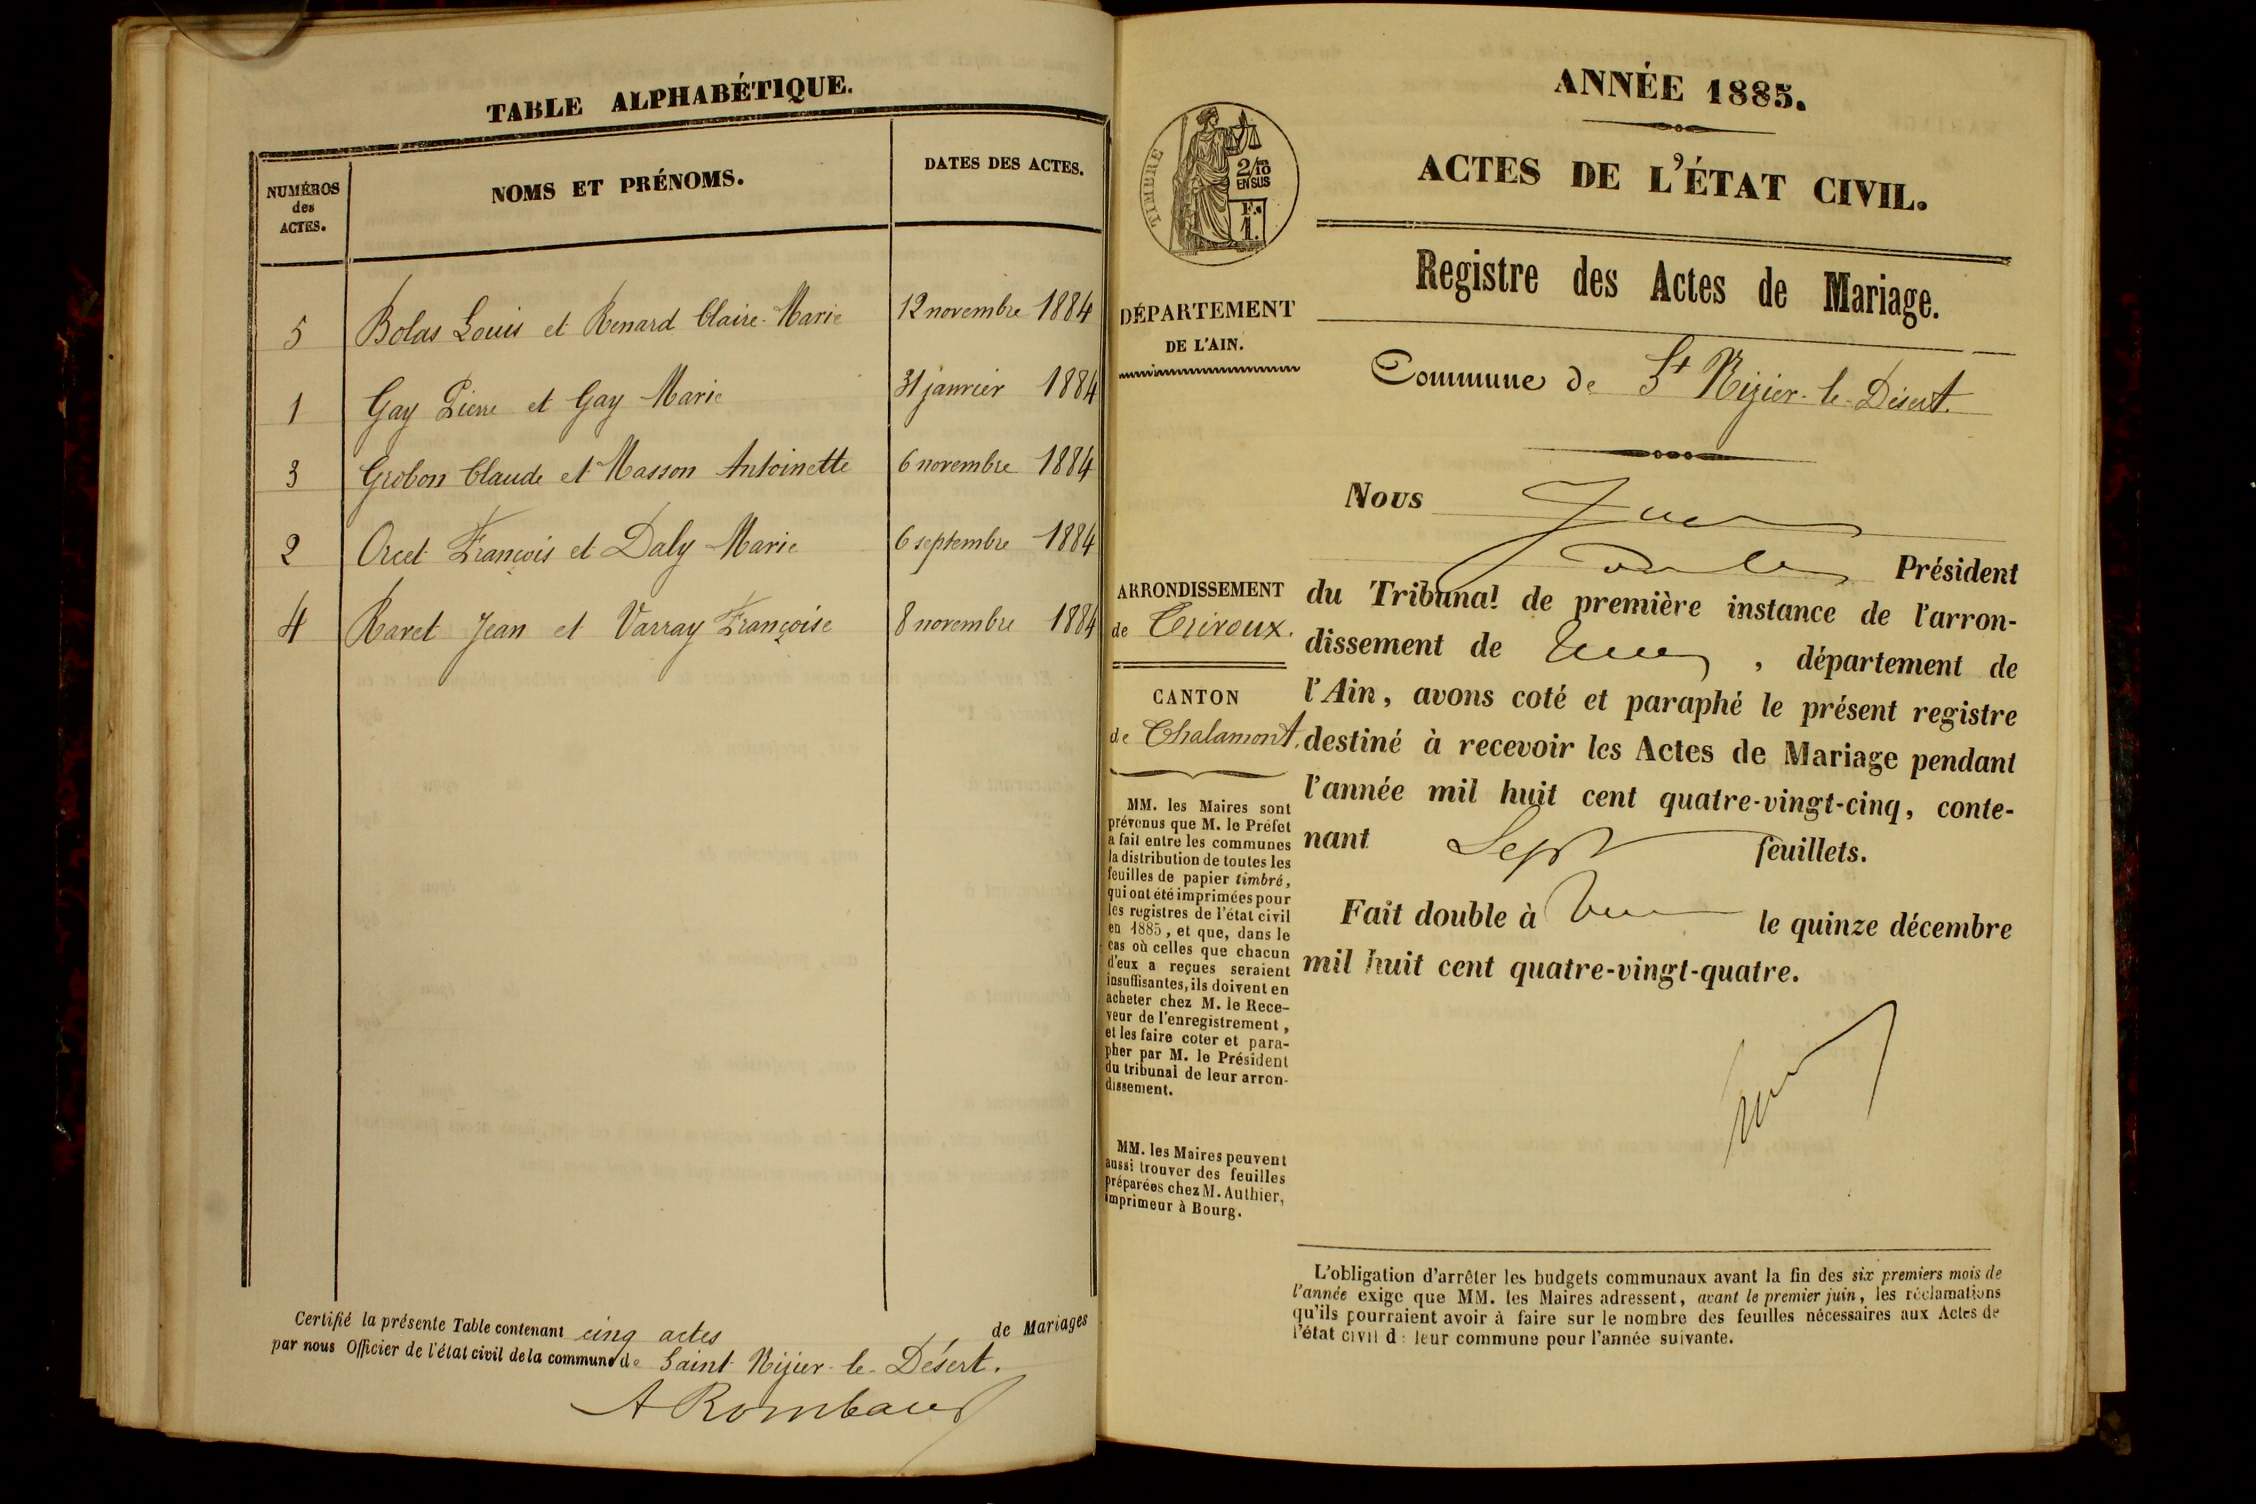 TABLE ALPHABÉTIQUE.
NUMÉROS
des
ACTES.
NOMS ET PRÉNOMS.
DATES DES ACTES.
5 Bolas Louis et Renard Claire-Marie 12 novembre 1884
1 Gay Pierre et Gay Marie 31 janvier 1884
3 Grobon Claude et Masson Antoinette 6 novembre 1884
2 Orcet François et Daly Marie 6 septembre 1884
4 Ravet Jean et Varray Françoise 8 novembre 1884
Certifié la présente Table contenant cinq actes de Mariages
par nous Officier de l'état civil de la commune de Saint-Nizier-le-Désert.
A Rombaud
TIMBRE
2/10
EN SUS
F.
1.
DÉPARTEMENT
DE L'AIN.
ARRONDISSEMENT
de Trévoux.
CANTON
de Chalamont.
MM. les Maires sont
prévenus que M. le Préfet
a fait entre les communes
la distribution de toutes les
feuilles de papier timbré,
qui ont été imprimées pour
les registres de l'état civil
en 1885, et que, dans le
cas où celles que chacun
d'eux a reçues seraient
insuffisantes, ils doivent en
acheter chez M. le Rece-
veur de l'enregistrement,
et les faire coter et para-
pher par M. le Président
du tribunal de leur arron-
dissement.
MM. les Maires peuvent
aussi trouver des feuilles
préparées chez M. Authier,
imprimeur à Bourg.
ANNÉE 1885.
ACTES DE L'ÉTAT CIVIL.
Registre des Actes de Mariage.
Commune de St Nizier-le-Désert.
Nous
Président
du Tribunal de première instance de l'arron-
dissement de , département de
l'Ain, avons coté et paraphé le présent registre
destiné à recevoir les Actes de Mariage pendant
l'année mil huit cent quatre-vingt-cinq, conte-
nant Sept feuillets.
Fait double à le quinze décembre
mil huit cent quatre-vingt-quatre.
L'obligation d'arrêter les budgets communaux avant la fin des six premiers mois de
l'année exige que MM. les Maires adressent, avant le premier juin, les réclamations
qu'ils pourraient avoir à faire sur le nombre des feuilles nécessaires aux Actes de
l'état civil d: leur commune pour l'année suivante.